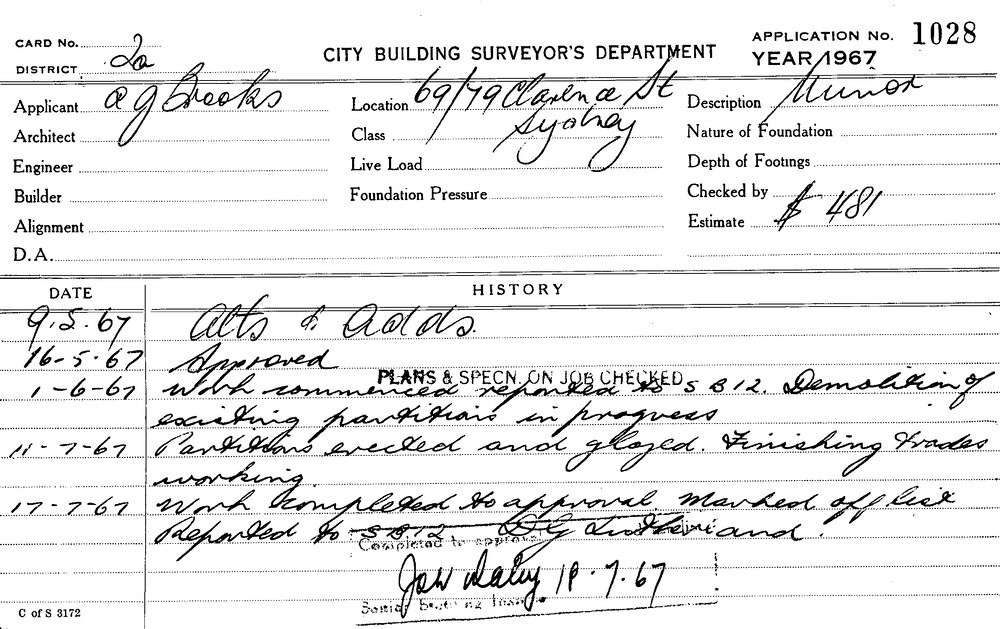 CARD No.
DISTRICT 2a
CITY BUILDING SURVEYOR'S DEPARTMENT
APPLICATION No. 1028
YEAR 1967
Applicant a g Brooks
Architect
Engineer
Builder
Alignment
D.A.
Location 69/79 Clarence St
Sydney
Class
Live Load
Foundation Pressure
Description Minor
Nature of Foundation
Depth of Footings
Checked by
Estimate $ 481
DATE HISTORY
9.5.67 Alts & Adds.
16-5-67 Approved
PLANS & SPECN. ON JOB CHECKED
1-6-67 Work commenced reported to S B 12. Demolition of
existing partitions in progress
11-7-67 Partitions erected and glazed. Finishing trades
working.
17-7-67 Work completed to approval Marked off list
Reported to S B 12
Completed to approval
18.7.67
C of S 3172